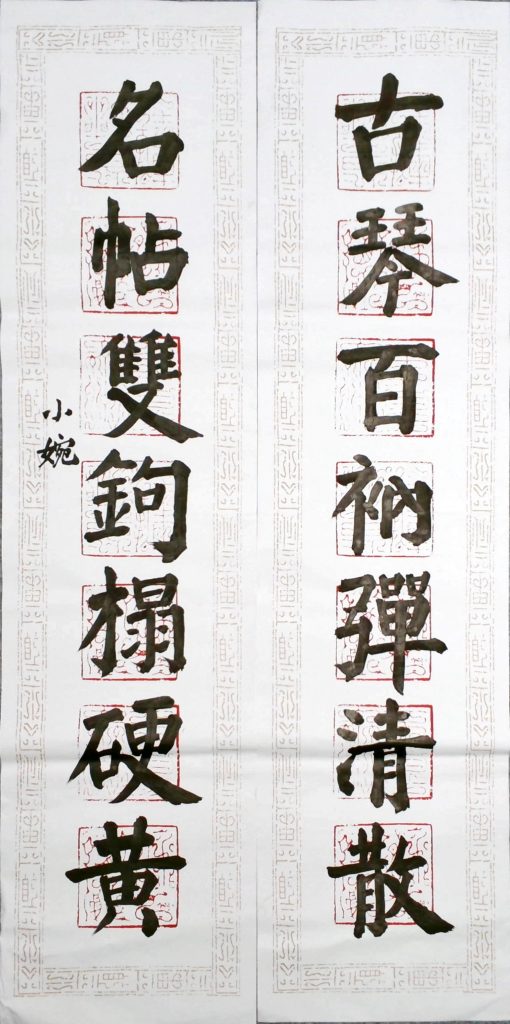 古琴百衲彈清散
名帖雙鉤榻硬黄
小婉